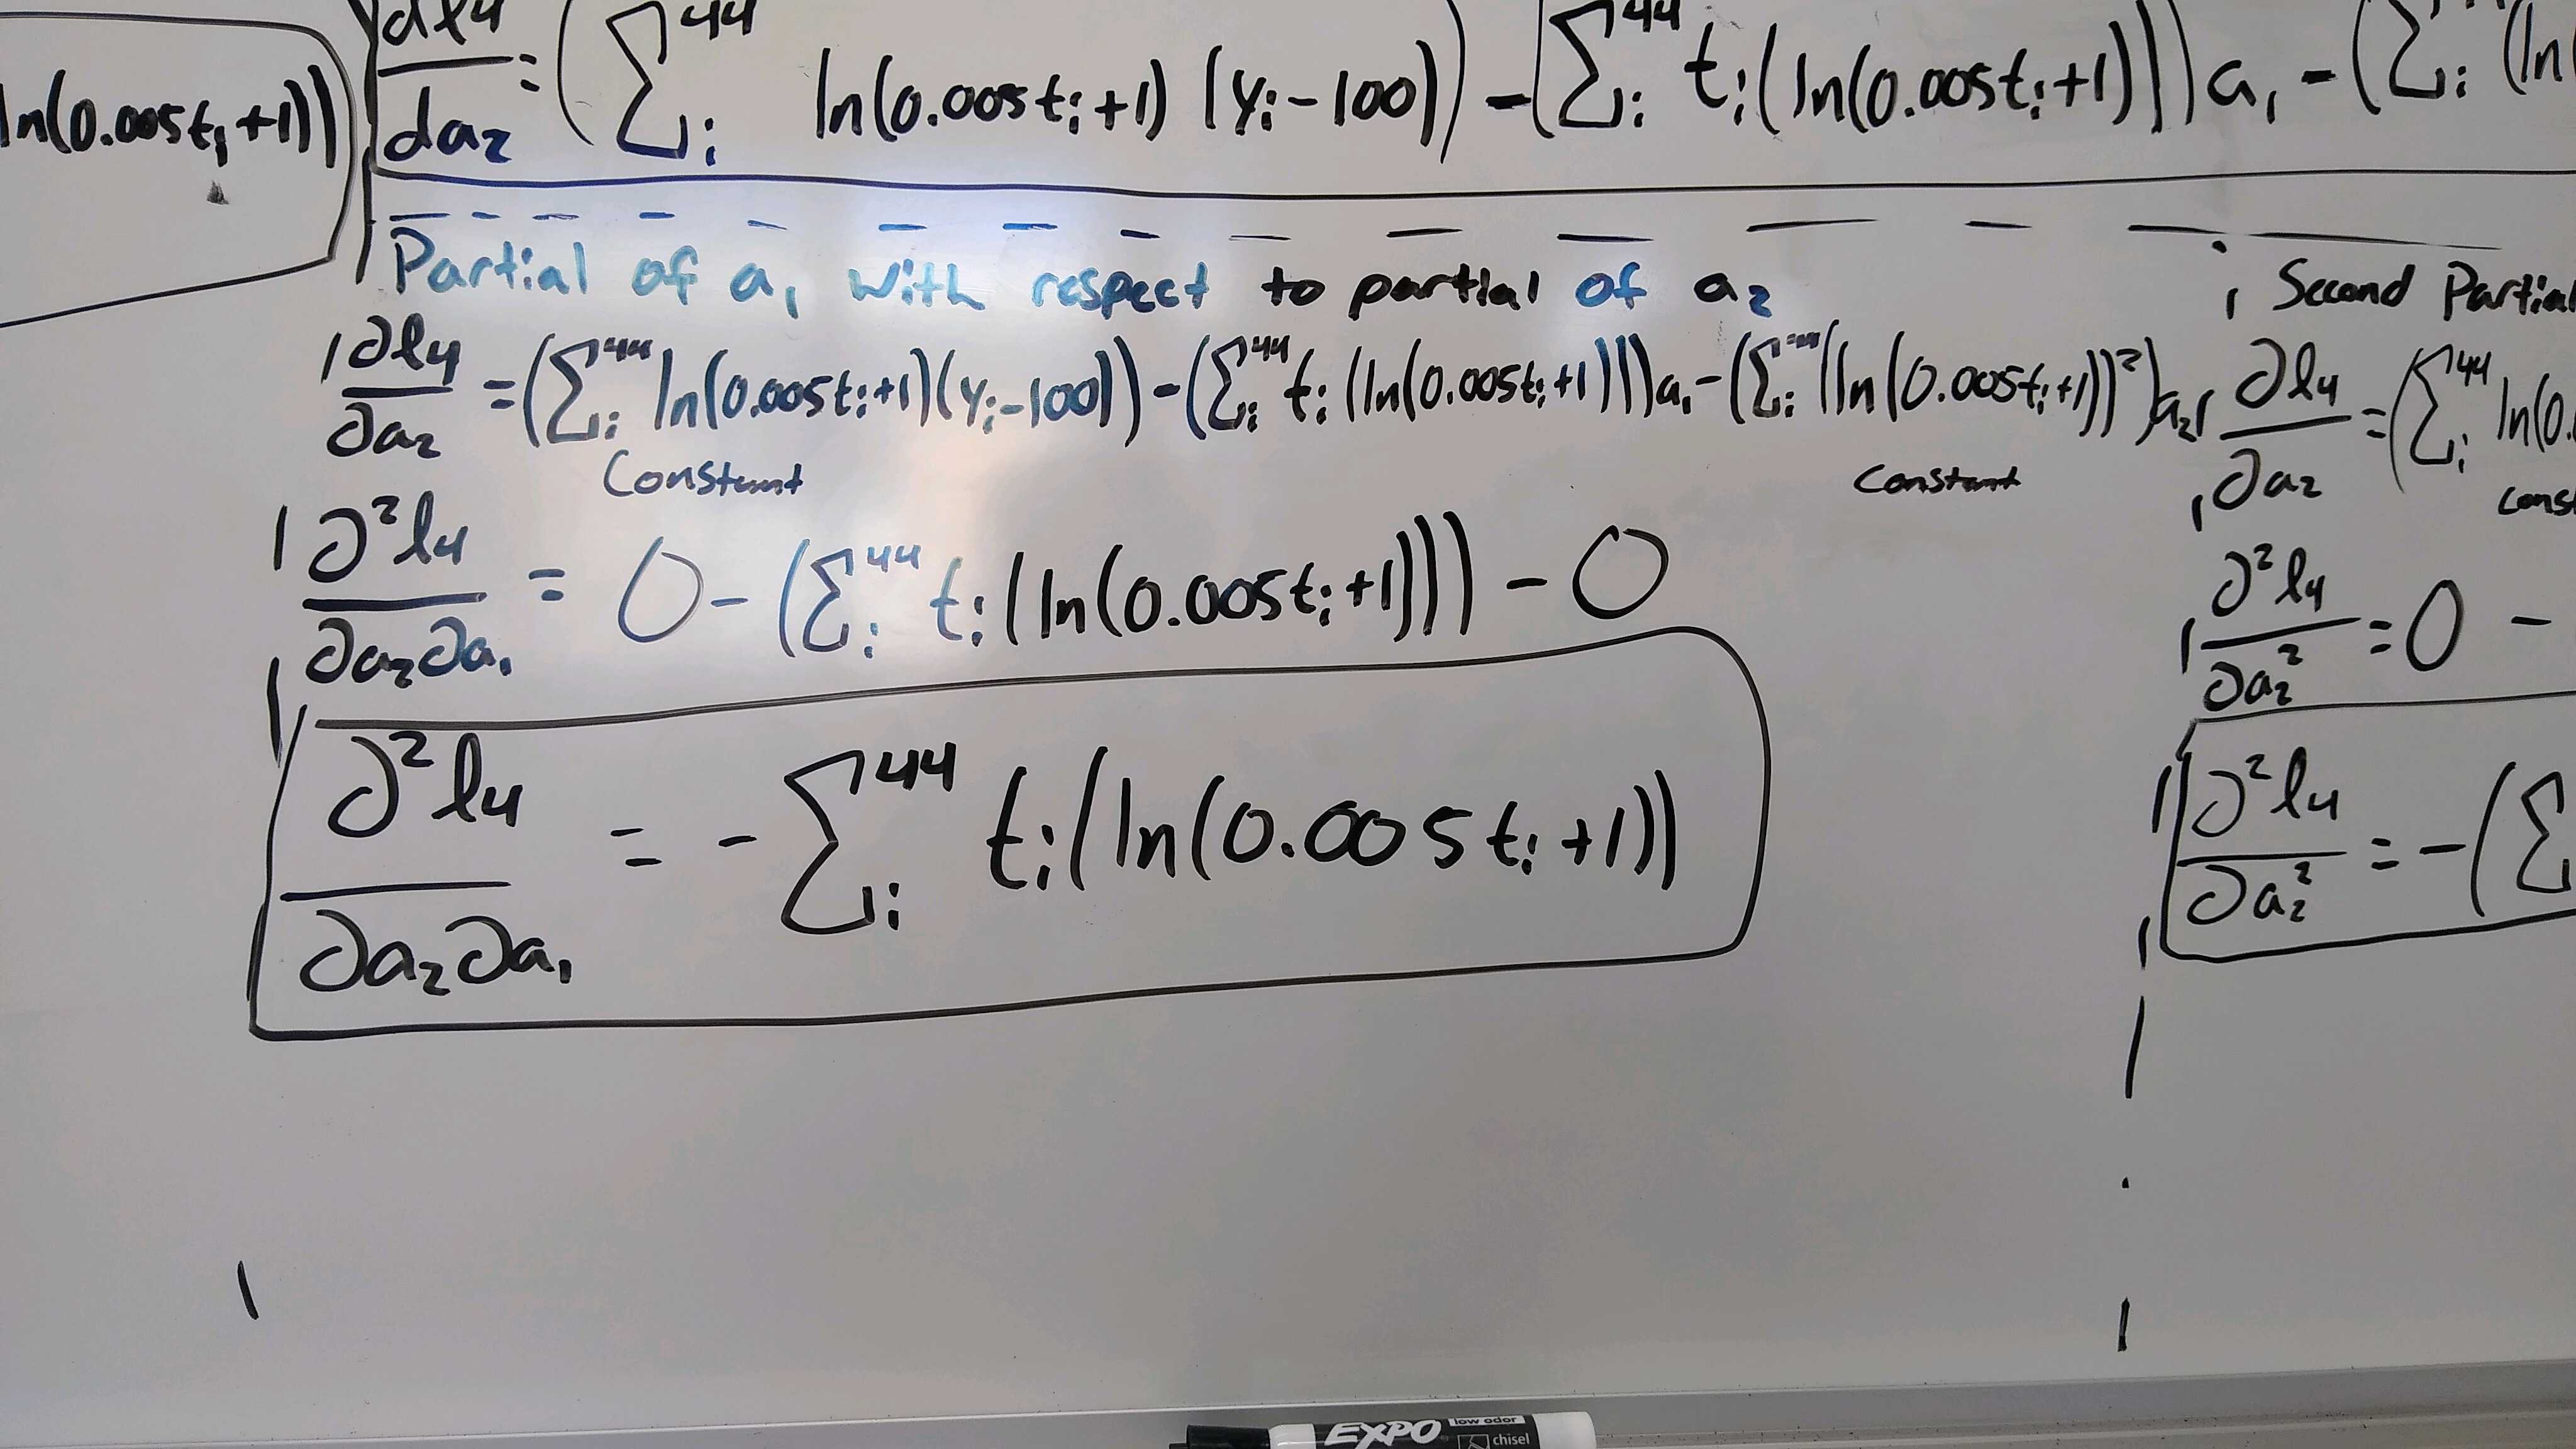 ln(0.005tᵢ+1))
dl₄/da₂ = (∑ᵢ⁴⁴ ln(0.005tᵢ+1) (yᵢ-100)) - (∑ᵢ⁴⁴ tᵢ(ln(0.005tᵢ+1)))a₁ - (∑ᵢ (ln
Partial of a₁ with respect to partial of a₂
∂l₄/∂a₂ = (∑ᵢ⁴⁴ ln(0.005tᵢ+1)(yᵢ-100)) - (∑ᵢ⁴⁴ tᵢ(ln(0.005tᵢ+1)))a₁ - (∑ᵢ⁴⁴ (ln(0.005tᵢ+1))²)a₂
Constant Constant
∂²l₄/∂a₂∂a₁ = 0 - (∑ᵢ⁴⁴ tᵢ(ln(0.005tᵢ+1))) - 0
∂²l₄/∂a₂∂a₁ = -∑ᵢ⁴⁴ tᵢ(ln(0.005tᵢ+1))
Second Partial
∂l₄/∂a₂ = (∑ᵢ⁴⁴ ln(0.
const
∂²l₄/∂a₂² = 0 -
∂²l₄/∂a₂² = -(∑
EXPO low odor
chisel